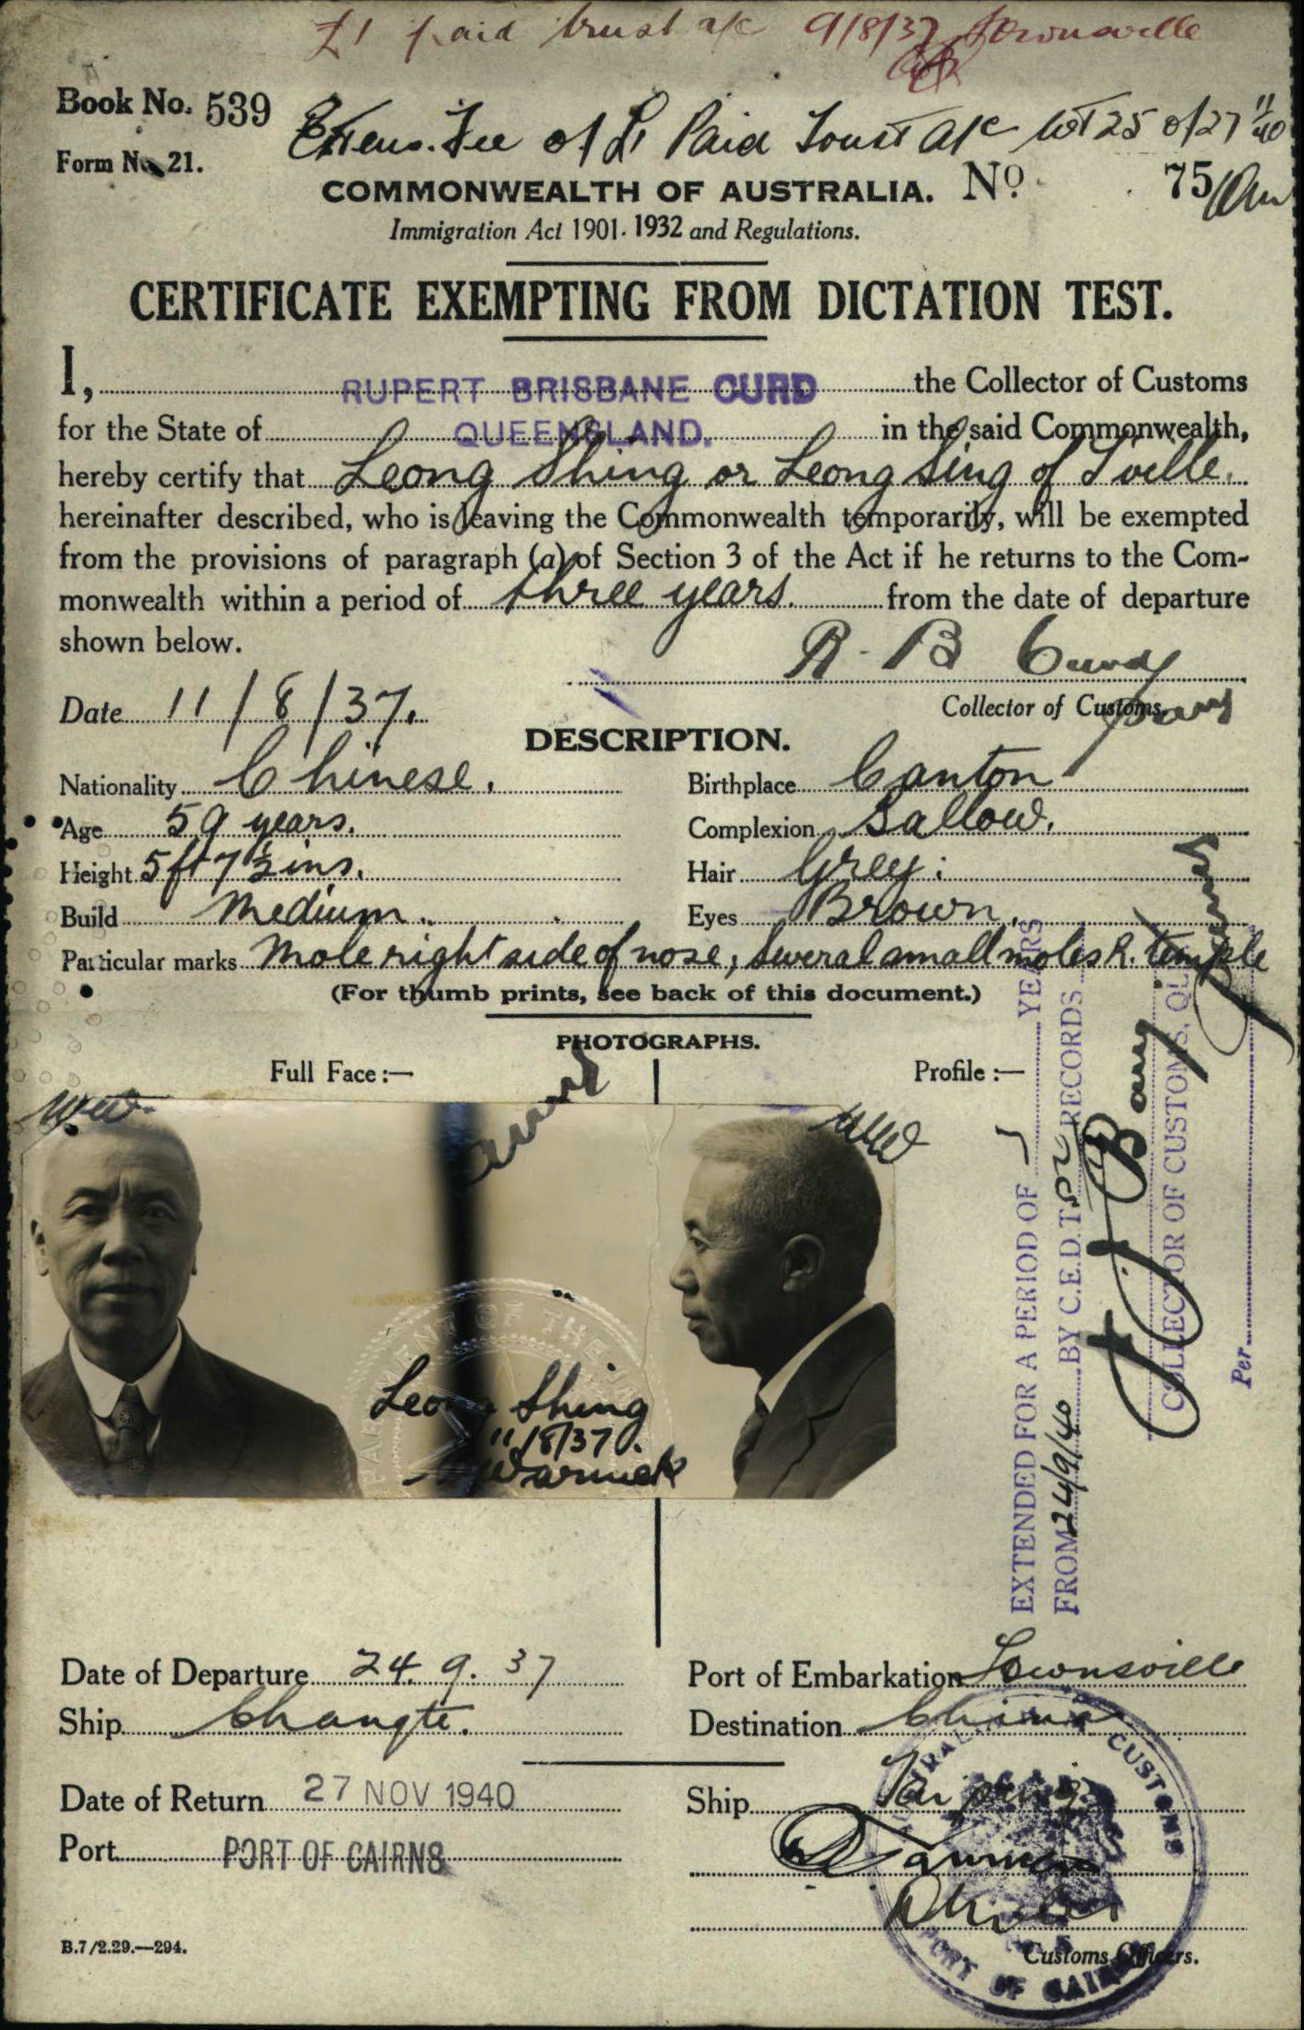 £1 paid trust a/c 9/8/37 Townsville
Book No. 539
Extens. Fee of £1 Paid Trust A/c WT 25 of 27/11/40
Form No. 21.
COMMONWEALTH OF AUSTRALIA. No. 75
Immigration Act 1901-1932 and Regulations.
CERTIFICATE EXEMPTING FROM DICTATION TEST.
I, RUPERT BRISBANE CURD the Collector of Customs
for the State of QUEENSLAND. in the said Commonwealth,
hereby certify that Leong Shing or Leong Sing of T'ville.
hereinafter described, who is leaving the Commonwealth temporarily, will be exempted
from the provisions of paragraph (a) of Section 3 of the Act if he returns to the Com-
monwealth within a period of three years. from the date of departure
shown below.
R. B. Curd
Date 11/8/37. Collector of Customs.
DESCRIPTION.
Nationality Chinese. Birthplace Canton
Age 59 years. Complexion Sallow.
Height 5ft 7½ ins. Hair Grey.
Build Medium. Eyes Brown.
Particular marks Mole right side of nose, several small moles R. temple
(For thumb prints, see back of this document.)
PHOTOGRAPHS.
Full Face:— Profile:—
Leong Shing
11/8/37.
Warwick
EXTENDED FOR A PERIOD OF 1 YEARS
FROM 24/9/40 BY C.E.D.T. RECORDS
COLLECTOR OF CUSTOMS, QL
Per
Date of Departure 24.9.37 Port of Embarkation Townsville
Ship Changte. Destination China
Date of Return 27 NOV 1940 Ship Taiping
Port PORT OF CAIRNS
CUSTOMS
PORT OF CAIRNS
Customs Officers.
B.7/2.29.—294.